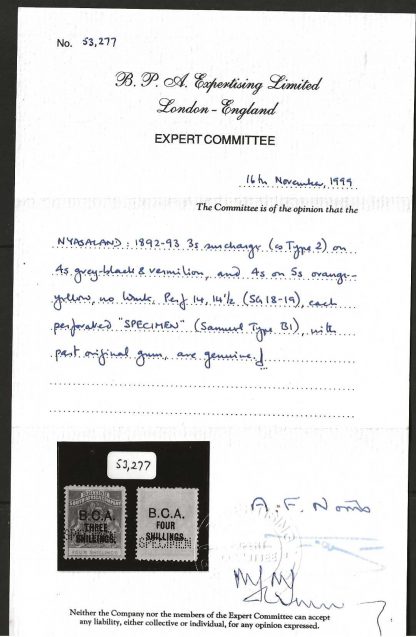 No. 53,277
B. P. A. Expertising Limited
London - England
EXPERT COMMITTEE
16th November, 1999
The Committee is of the opinion that the
NYASALAND: 1892-93 3s surcharge (as Type 2) on
4s grey-black & vermilion, and 4s on 5s orange-
yellow, no wmk. Perf 14, 14½ (SG 18-19), each
perforated "SPECIMEN" (Samuel Type B1), with
part original gum, are genuine.
53,277
B.C.A. B.C.A.
THREE FOUR
SHILLINGS. SHILLINGS.
SPECIMEN
FOUR SHILLINGS
A. F. Norris
Neither the Company nor the members of the Expert Committee can accept
any liability, either collective or individual, for any opinion expressed.